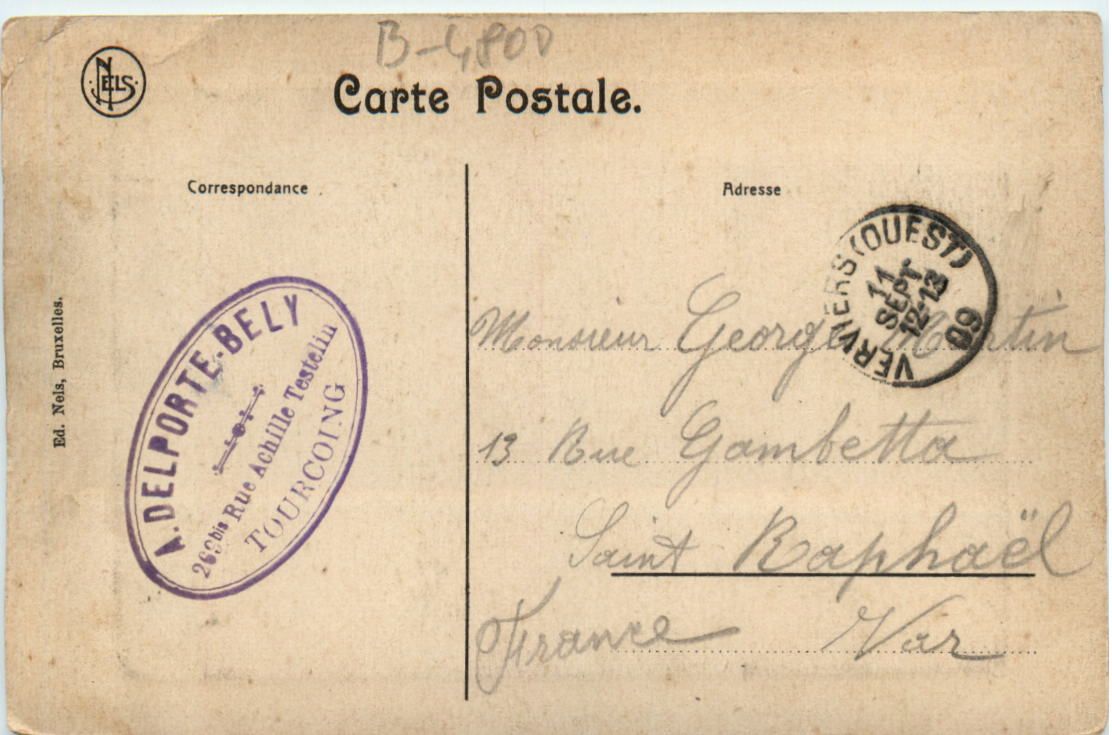 B-4800
NELS
Carte Postale.
Correspondance
Adresse
Ed. Nels, Bruxelles.
A. DELPORTE-BELY
269bis Rue Achille Testelin
TOURCOING
VERVIERS (OUEST)
11
SEPT
12-13
09
Monsieur Georges Martin
13 Rue Gambetta
Saint Raphaël
France Var